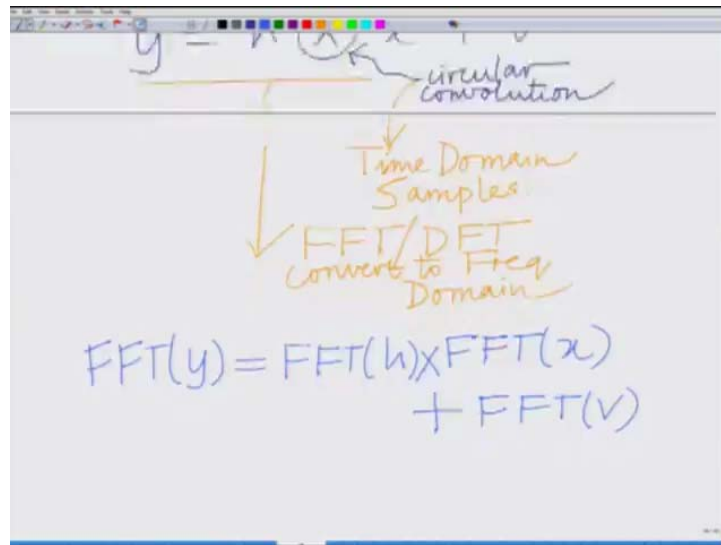 y = h ⊗ x + v
circular
convolution
Time Domain
Samples
FFT/DFT
convert to Freq
Domain
FFT(y) = FFT(h) x FFT(x)
+ FFT(V)